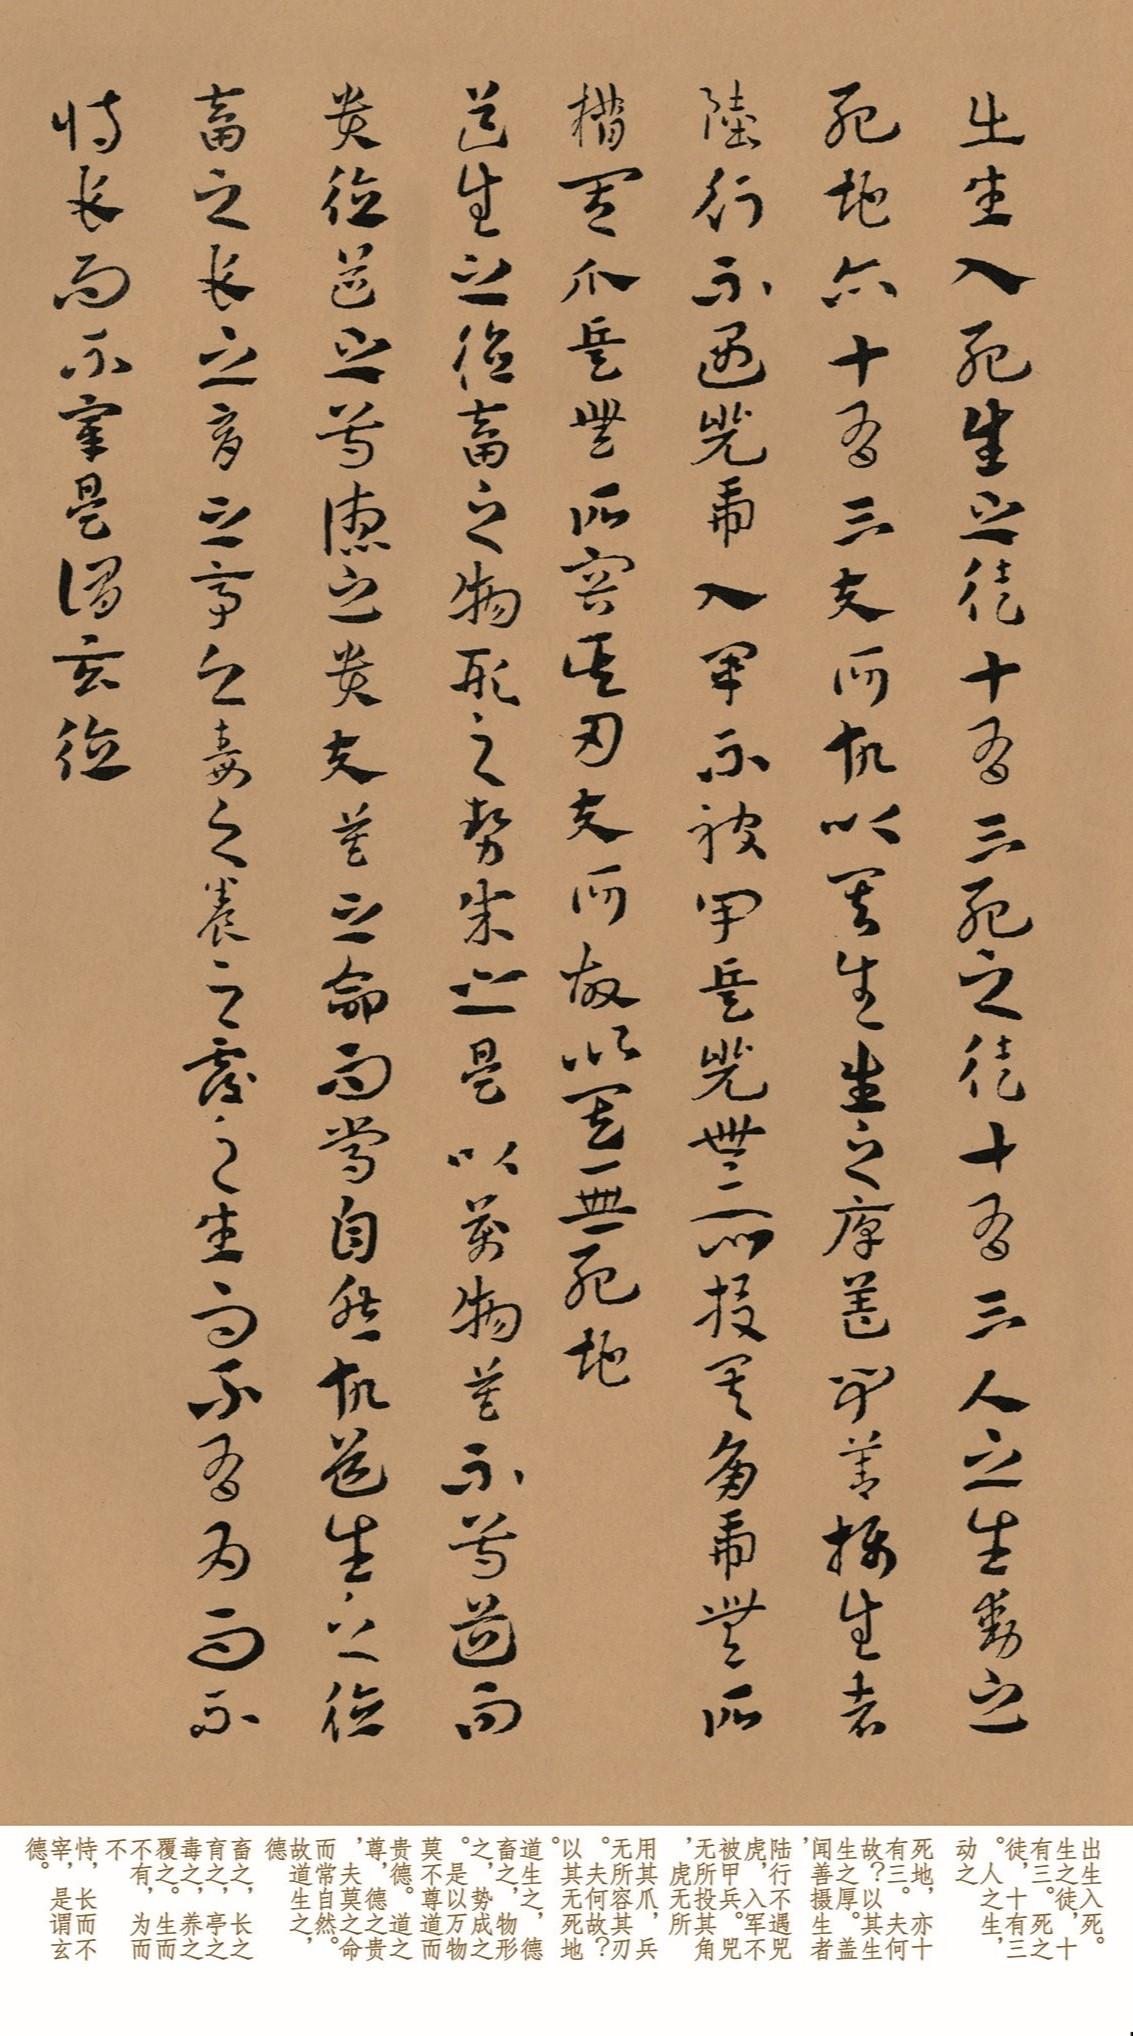 出生入死生之徒十有三死之徒十有三人之生動之
死地亦十有三夫何故以其生生之厚蓋聞善攝生者
陸行不遇兕虎入軍不被甲兵兕無所投其角虎無所
措其爪兵無所容其刃夫何故以其無死地
道生之德畜之物形之勢成之是以萬物莫不尊道而
貴德道之尊德之貴夫莫之命而常自然故道生之德
畜之長之育之亭之毒之養之覆之生而不有為而不
恃長而不宰是謂玄德
出生入死。
生之徒，十
有三。死之
徒，十有三
。人之生，
动之
死地，亦十
有三。夫何
故？以其生
生之厚。盖
闻善摄生者
，
陆行不遇兕
虎，入军不
被甲兵。兕
无所投其角
，虎无所
用其爪，兵
无所容其刃
。夫何故？
以其无死地
。
道生之，德
畜之，物形
之，势成之
。是以万物
莫不尊道而
贵德。道之
尊，德之贵
，夫莫之命
而常自然。
故道生之，
德
畜之，长之
育之，亭之
毒之，养之
覆之。生而
不有，为而
不
恃，长而不
宰，是谓玄
德。